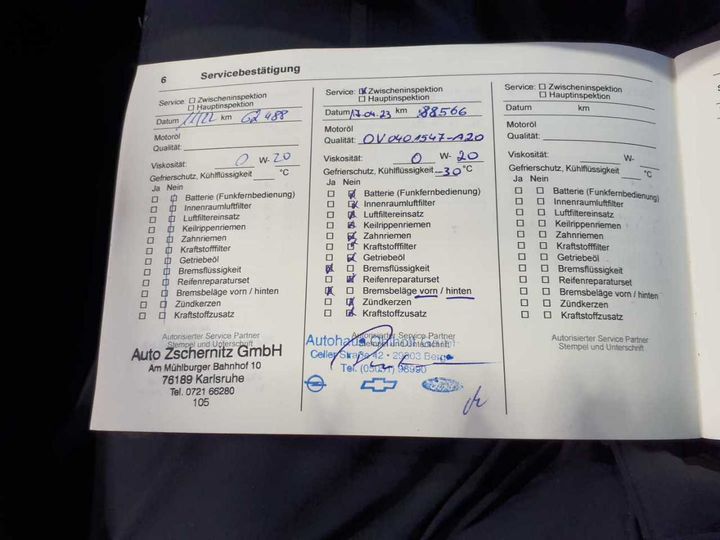 6 Servicebestätigung
Service: Zwischeninspektion
Hauptinspektion
Datum 11/22 km 62 488
Motoröl
Qualität:
Viskosität: 0 W- 20
Gefrierschutz, Kühlflüssigkeit °C
Ja Nein
Batterie (Funkfernbedienung)
Innenraumluftfilter
Luftfiltereinsatz
Keilrippenriemen
Zahnriemen
Kraftstofffilter
Getriebeöl
Bremsflüssigkeit
Reifenreparaturset
Bremsbeläge vorn / hinten
Zündkerzen
Kraftstoffzusatz
Autorisierter Service Partner
Stempel und Unterschrift
Auto Zschernitz GmbH
Am Mühlburger Bahnhof 10
76189 Karlsruhe
Tel. 0721 66280
105
Service: Zwischeninspektion
Hauptinspektion
Datum 17.04.23 km 88566
Motoröl
Qualität: OV0401547-A20
Viskosität: 0 W- 20
Gefrierschutz, Kühlflüssigkeit -30 °C
Ja Nein
Batterie (Funkfernbedienung)
Innenraumluftfilter
Luftfiltereinsatz
Keilrippenriemen
Zahnriemen
Kraftstofffilter
Getriebeöl
Bremsflüssigkeit
Reifenreparaturset
Bremsbeläge vorn / hinten
Zündkerzen
Kraftstoffzusatz
Autorisierter Service Partner
Autohaus
Celler Straße 42 - 29303 Bergen
Tel. (05051) 98990
Service: Zwischeninspektion
Hauptinspektion
Datum km
Motoröl
Qualität:
Viskosität: W-
Gefrierschutz, Kühlflüssigkeit °C
Ja Nein
Batterie (Funkfernbedienung)
Innenraumluftfilter
Luftfiltereinsatz
Keilrippenriemen
Zahnriemen
Kraftstofffilter
Getriebeöl
Bremsflüssigkeit
Reifenreparaturset
Bremsbeläge vorn / hinten
Zündkerzen
Kraftstoffzusatz
Autorisierter Service Partner
Stempel und Unterschrift